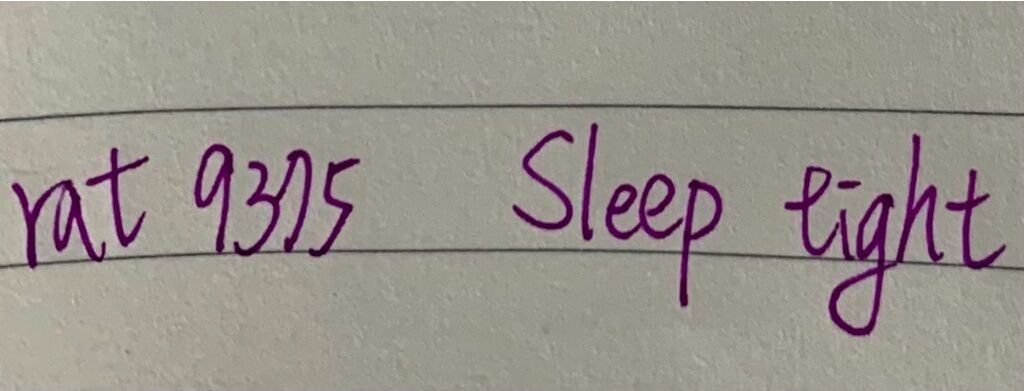 rat 9375 Sleep tight